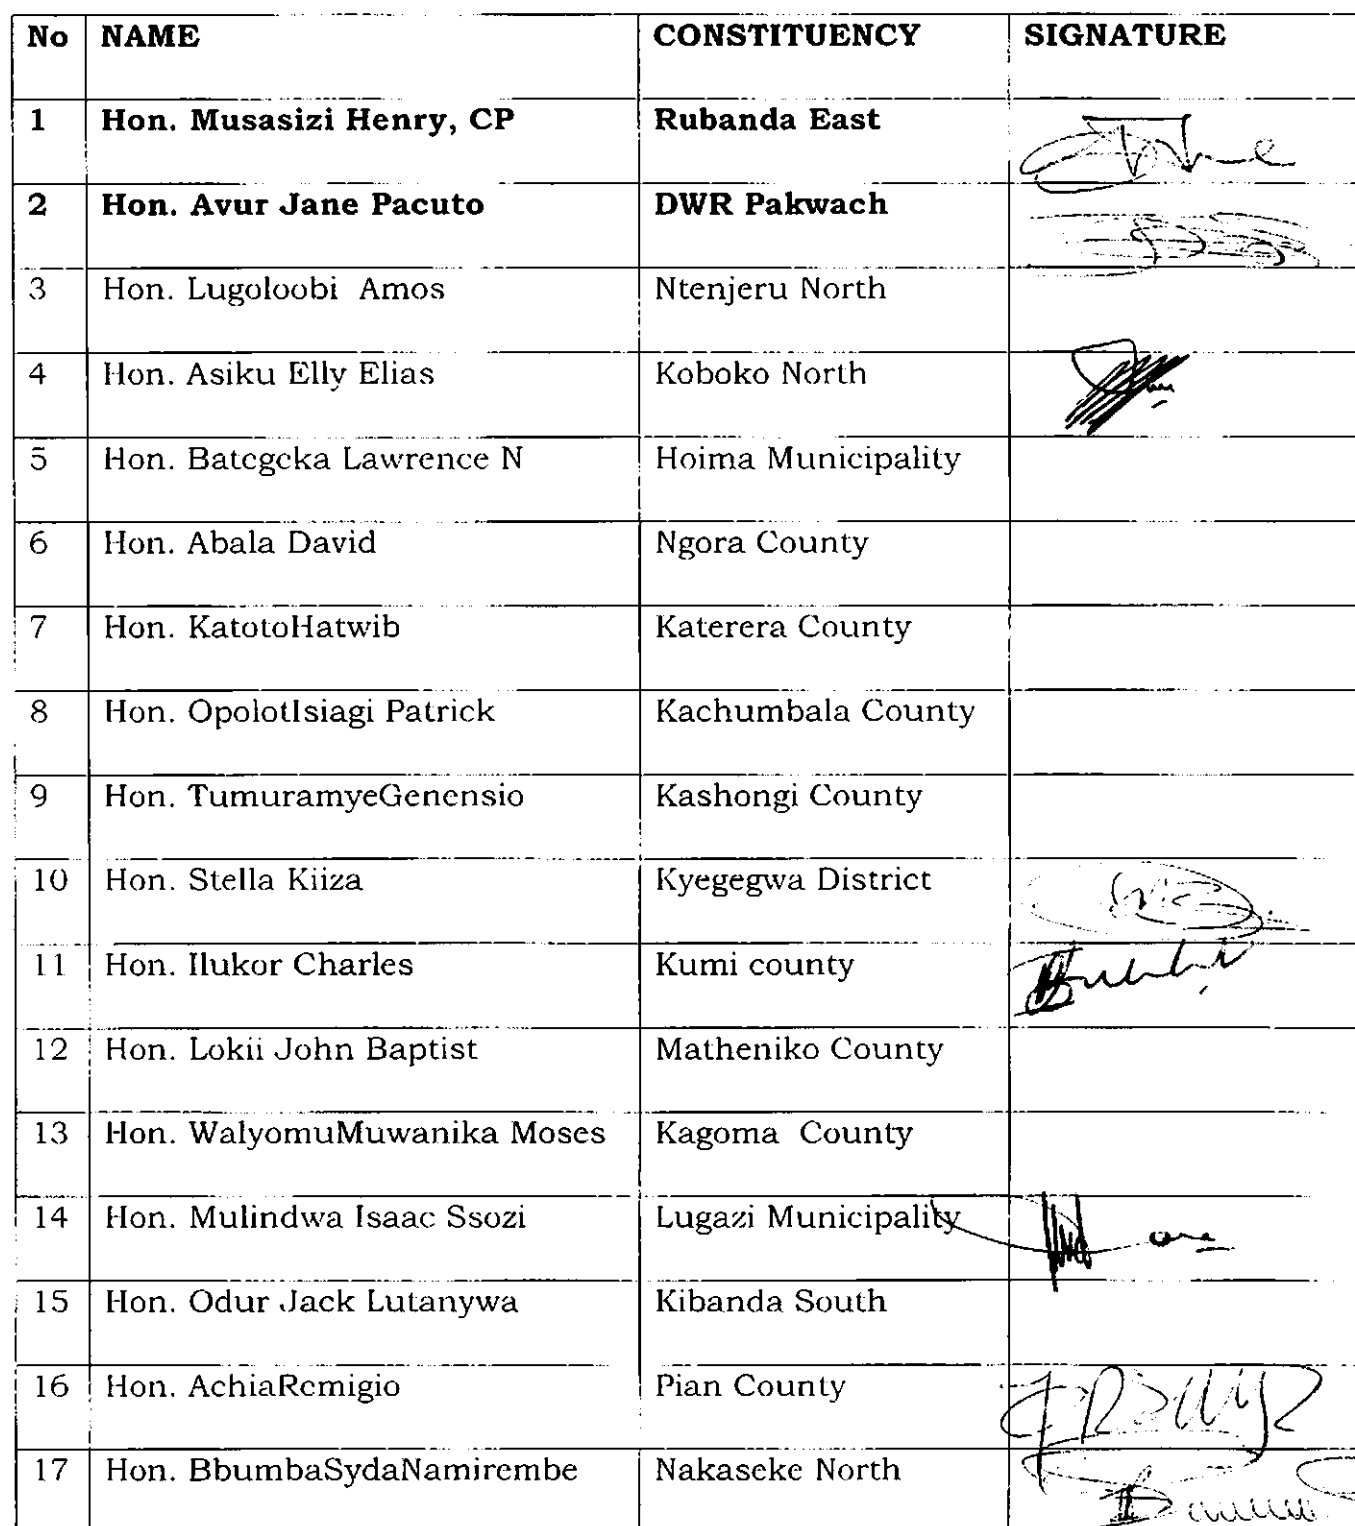 No NAME CONSTITUENCY SIGNATURE
1 Hon. Musasizi Henry, CP Rubanda East
2 Hon. Avur Jane Pacuto DWR Pakwach
3 Hon. Lugoloobi Amos Ntenjeru North
4 Hon. Asiku Elly Elias Koboko North
5 Hon. Bategeka Lawrence N Hoima Municipality
6 Hon. Abala David Ngora County
7 Hon. KatotoHatwib Katerera County
8 Hon. OpolotIsiagi Patrick Kachumbala County
9 Hon. TumuramyeGenensio Kashongi County
10 Hon. Stella Kiiza Kyegegwa District
11 Hon. Ilukor Charles Kumi county
12 Hon. Lokii John Baptist Matheniko County
13 Hon. WalyomuMuwanika Moses Kagoma County
14 Hon. Mulindwa Isaac Ssozi Lugazi Municipality
15 Hon. Odur Jack Lutanywa Kibanda South
16 Hon. AchiaRemigio Pian County
17 Hon. BbumbaSydaNamirembe Nakaseke North